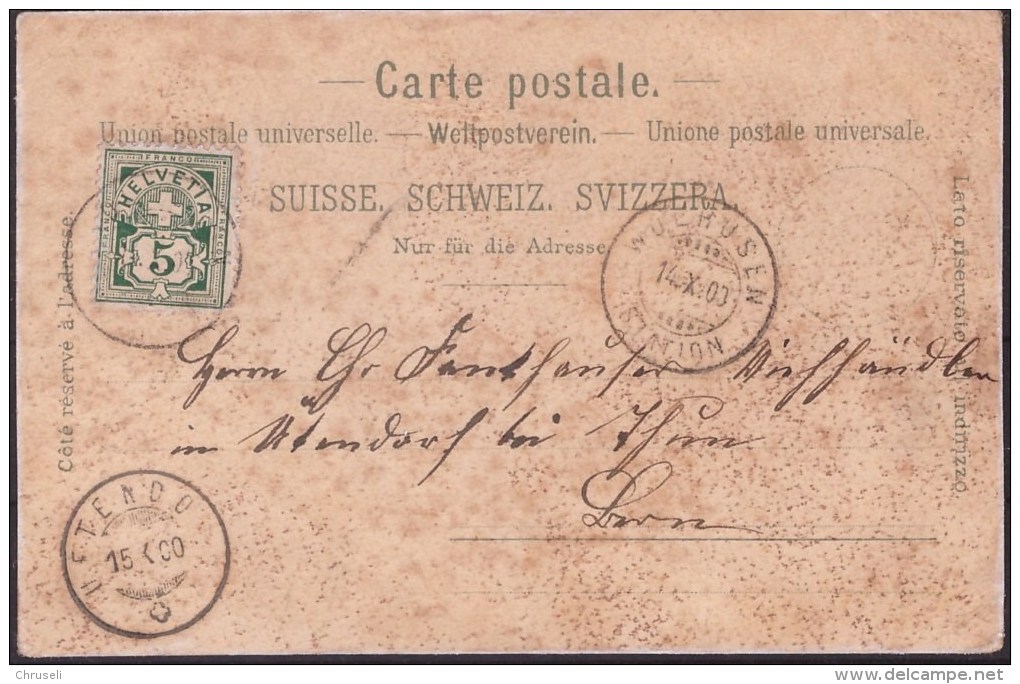 Carte postale.
Union postale universelle. — Weltpostverein. — Unione postale universale.
SUISSE. SCHWEIZ. SVIZZERA.
Nur für die Adresse
Côté réservé à l'adresse.
Lato riservato all' indirizzo
FRANCO
FRANCO
FRANCO
HELVETIA
5
WOLHUSEN
14.X.00
STATION
Herrn Chr Fankhauser Viehhändler
in Ütendorf bei Thun
Bern
UETENDO
15 X 00
Chruseli
delcampe.net